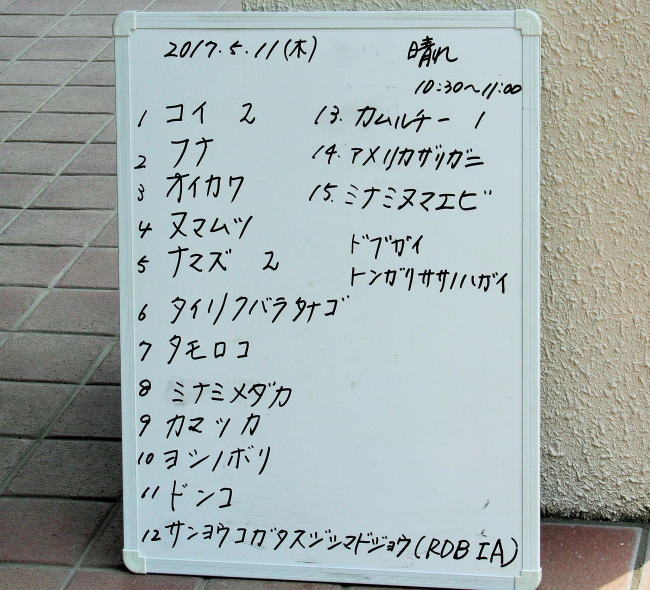 2017.5.11(木) 晴れ
10:30〜11:00
1 コイ 2
2 フナ
3 オイカワ
4 ヌマムツ
5 ナマズ 2
6 タイリクバラタナゴ
7 タモロコ
8 ミナミメダカ
9 カマツカ
10 ヨシノボリ
11 ドンコ
12 サンヨウコガタスジシマドジョウ(RDB IA)
13. カムルチー 1
14. アメリカザリガニ
15. ミナミヌマエビ
ドブガイ
トンガリササノハガイ